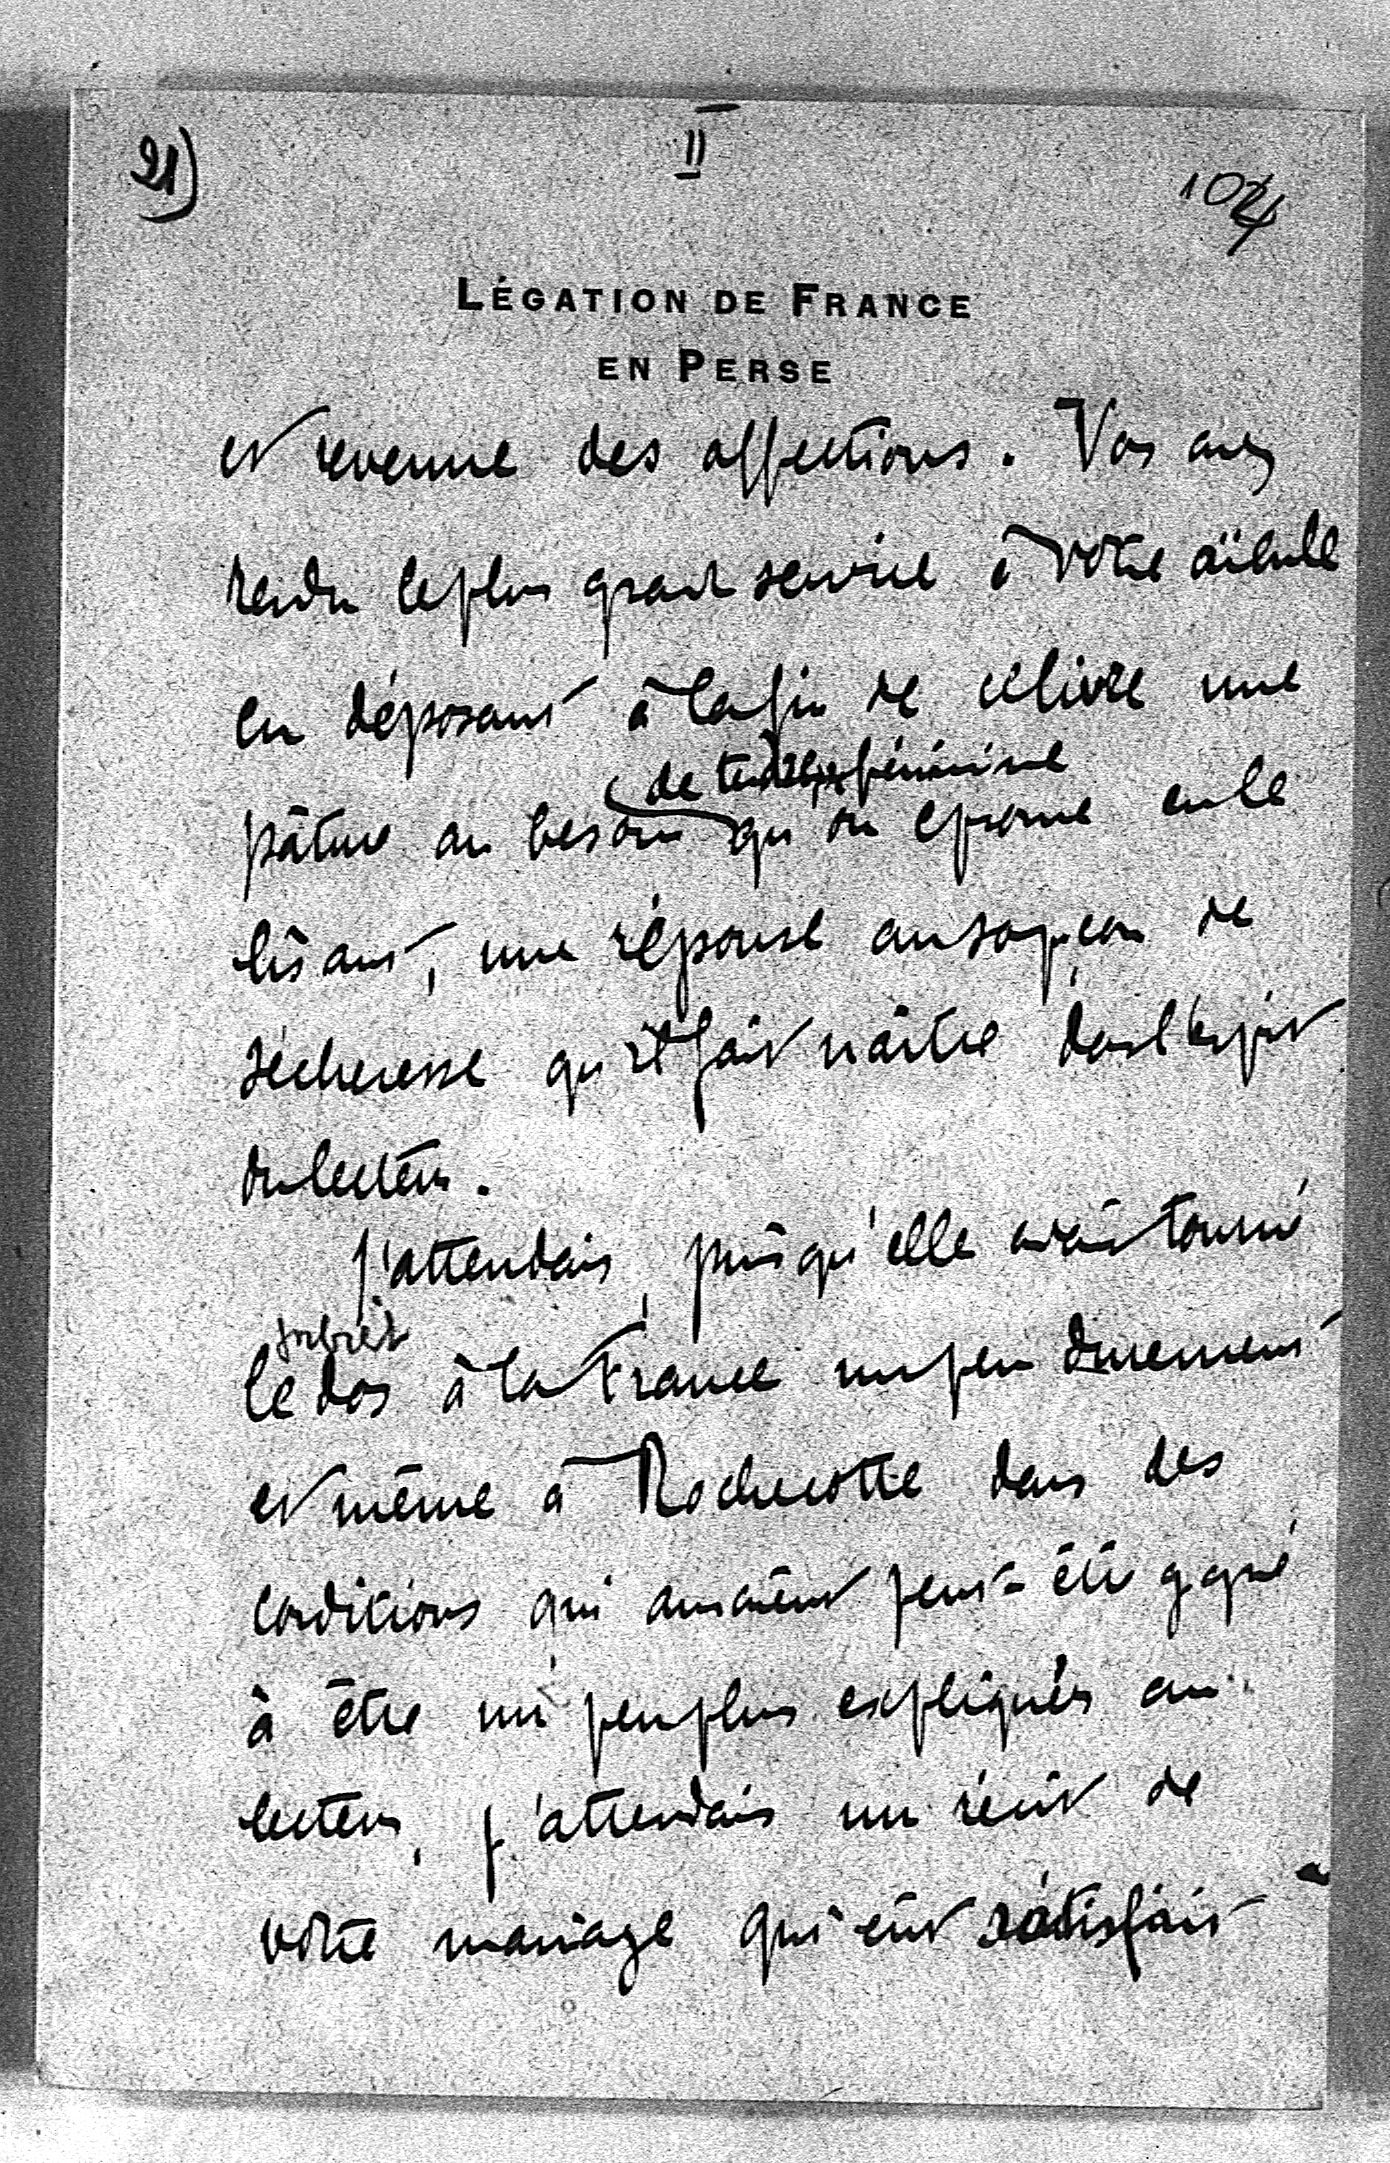 21)
II
104
LÉGATION DE FRANCE
EN PERSE
et revenue des affections. Vous avez
rendu le plus grand service à votre aïeule
en déposant à la fin de ce livre une
de tendresse féminine
pâture au besoin qu'on éprouve en le
lisant, une réponse au soupçon de
sécheresse qu'il fait naître dans l'esprit
du lecteur.
J'attendais, puisqu'elle avait tourné
le dos à la France un peu durement
et même à Rochecotte dans des
conditions qui auraient peut-être gagné
à être un peu plus expliquées au
lecteur, j'attendais un récit de
votre mariage qui eût satisfait